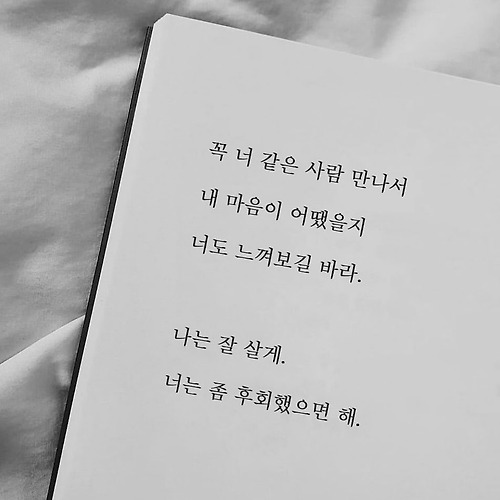 꼭 너 같은 사람 만나서
내 마음이 어땠을지
너도 느껴보길 바라.
나는 잘 살게.
너는 좀 후회했으면 해.